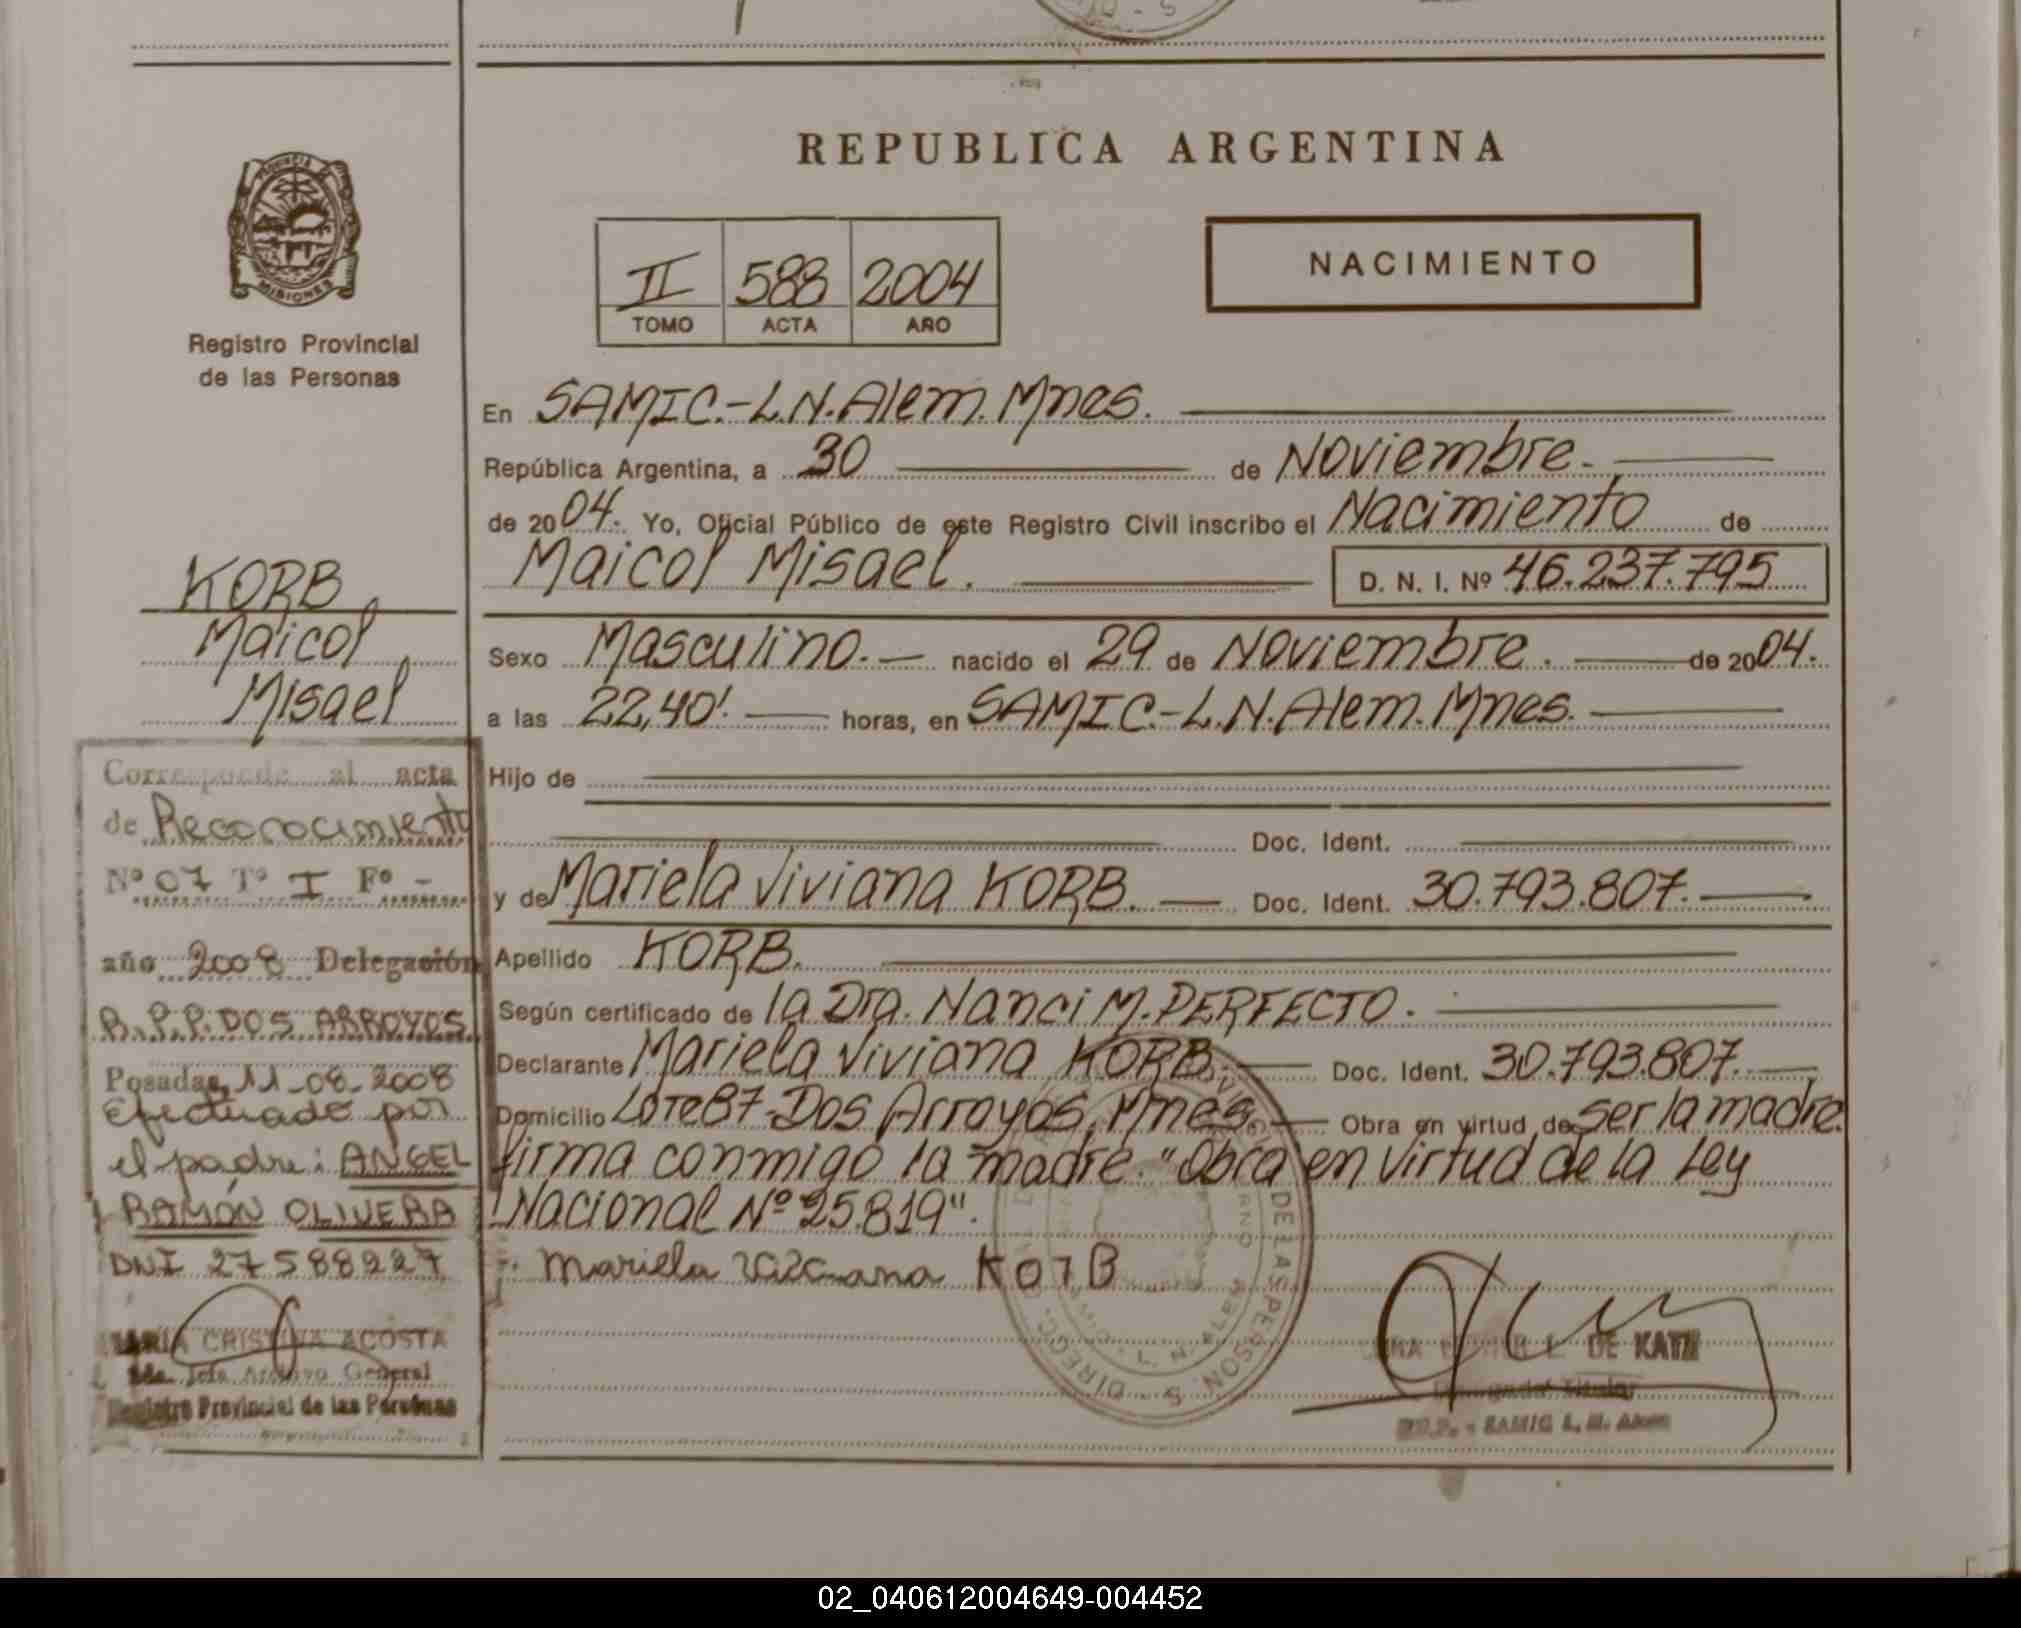 REPUBLICA ARGENTINA
PROVINCIA
MISIONES
Registro Provincial
de las Personas
II 588 2004
TOMO ACTA AÑO
NACIMIENTO
En SAMIC.-L.N.Alem.Mnes.
República Argentina, a 30 de Noviembre.
de 2004. Yo, Oficial Público de este Registro Civil inscribo el Nacimiento de
Maicol Misael. D. N. I. Nº 46.237.795
Sexo Masculino.- nacido el 29 de Noviembre. de 2004.
a las 22,40'. horas, en SAMIC.-L.N.Alem.Mnes.
Hijo de
Doc. Ident.
y de Mariela Viviana KORB. Doc. Ident. 30.793.807.
Apellido KORB.
Según certificado de la Dra. Nanci M. PERFECTO.
Declarante Mariela Viviana KORB. Doc. Ident. 30.793.807.
Domicilio Lote 87-Dos Arroyos, Mnes. Obra en virtud de ser la madre.
firma conmigo la madre. "Obra en virtud de la Ley
Nacional Nº 25.819".
Mariela Viviana KOrB
DE LAS PERSONAS
L. N. ALEM
DE KATZ
Titular
SAMIC L. N. Alem
KORB
Maicol
Misael
Corresponde al acta
de Reconocimiento
Nº 07 Tº I Fº -
año 2008 Delegación
R.P.P. DOS ARROYOS
Posadas, 11-08-2008
efectuado por
el padre: ANGEL
RAMÓN OLIVERA
DNI 27588227
MARÍA CRISTINA ACOSTA
Jefa Archivo General
Registro Provincial de las Personas
02_040612004649-004452